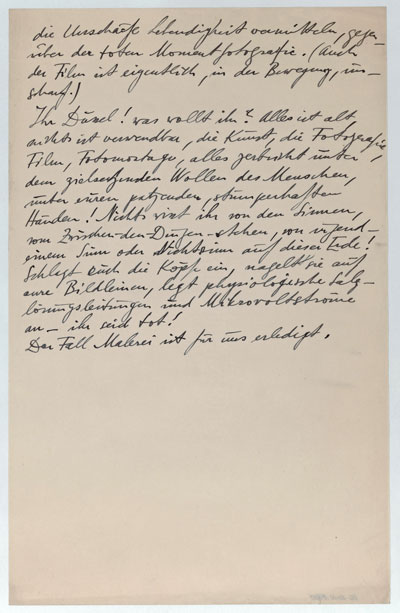 die Unschärfe Lebendigkeit vermitteln, gegen-
über der toten Momentfotografie. (Auch
der Film ist eigentlich, in der Bewegung, un-
scharf!)
Ihr Dussel! was wollt ihr? Alles ist alt,
nichts ist verwendbar, die Kunst, die Fotografie,
Film, Fotomontage, alles zerbricht unter
dem Wollen des Menschen,
unter euren patzenden, stümperhaften
Händen! Nichts wisst ihr von den Sinnen,
vom Zwischen-den-Dingen-stehen, von irgend-
einem Sinn oder Nichtsinn auf dieser Erde!
Schlagt euch die Köpfe ein, nagelt sie auf
eure Bildleinen, legt physiologische Salz-
lösungsleitungen und Mikrovoltströme
an – ihr seid tot!
Der Fall Malerei ist für uns erledigt.